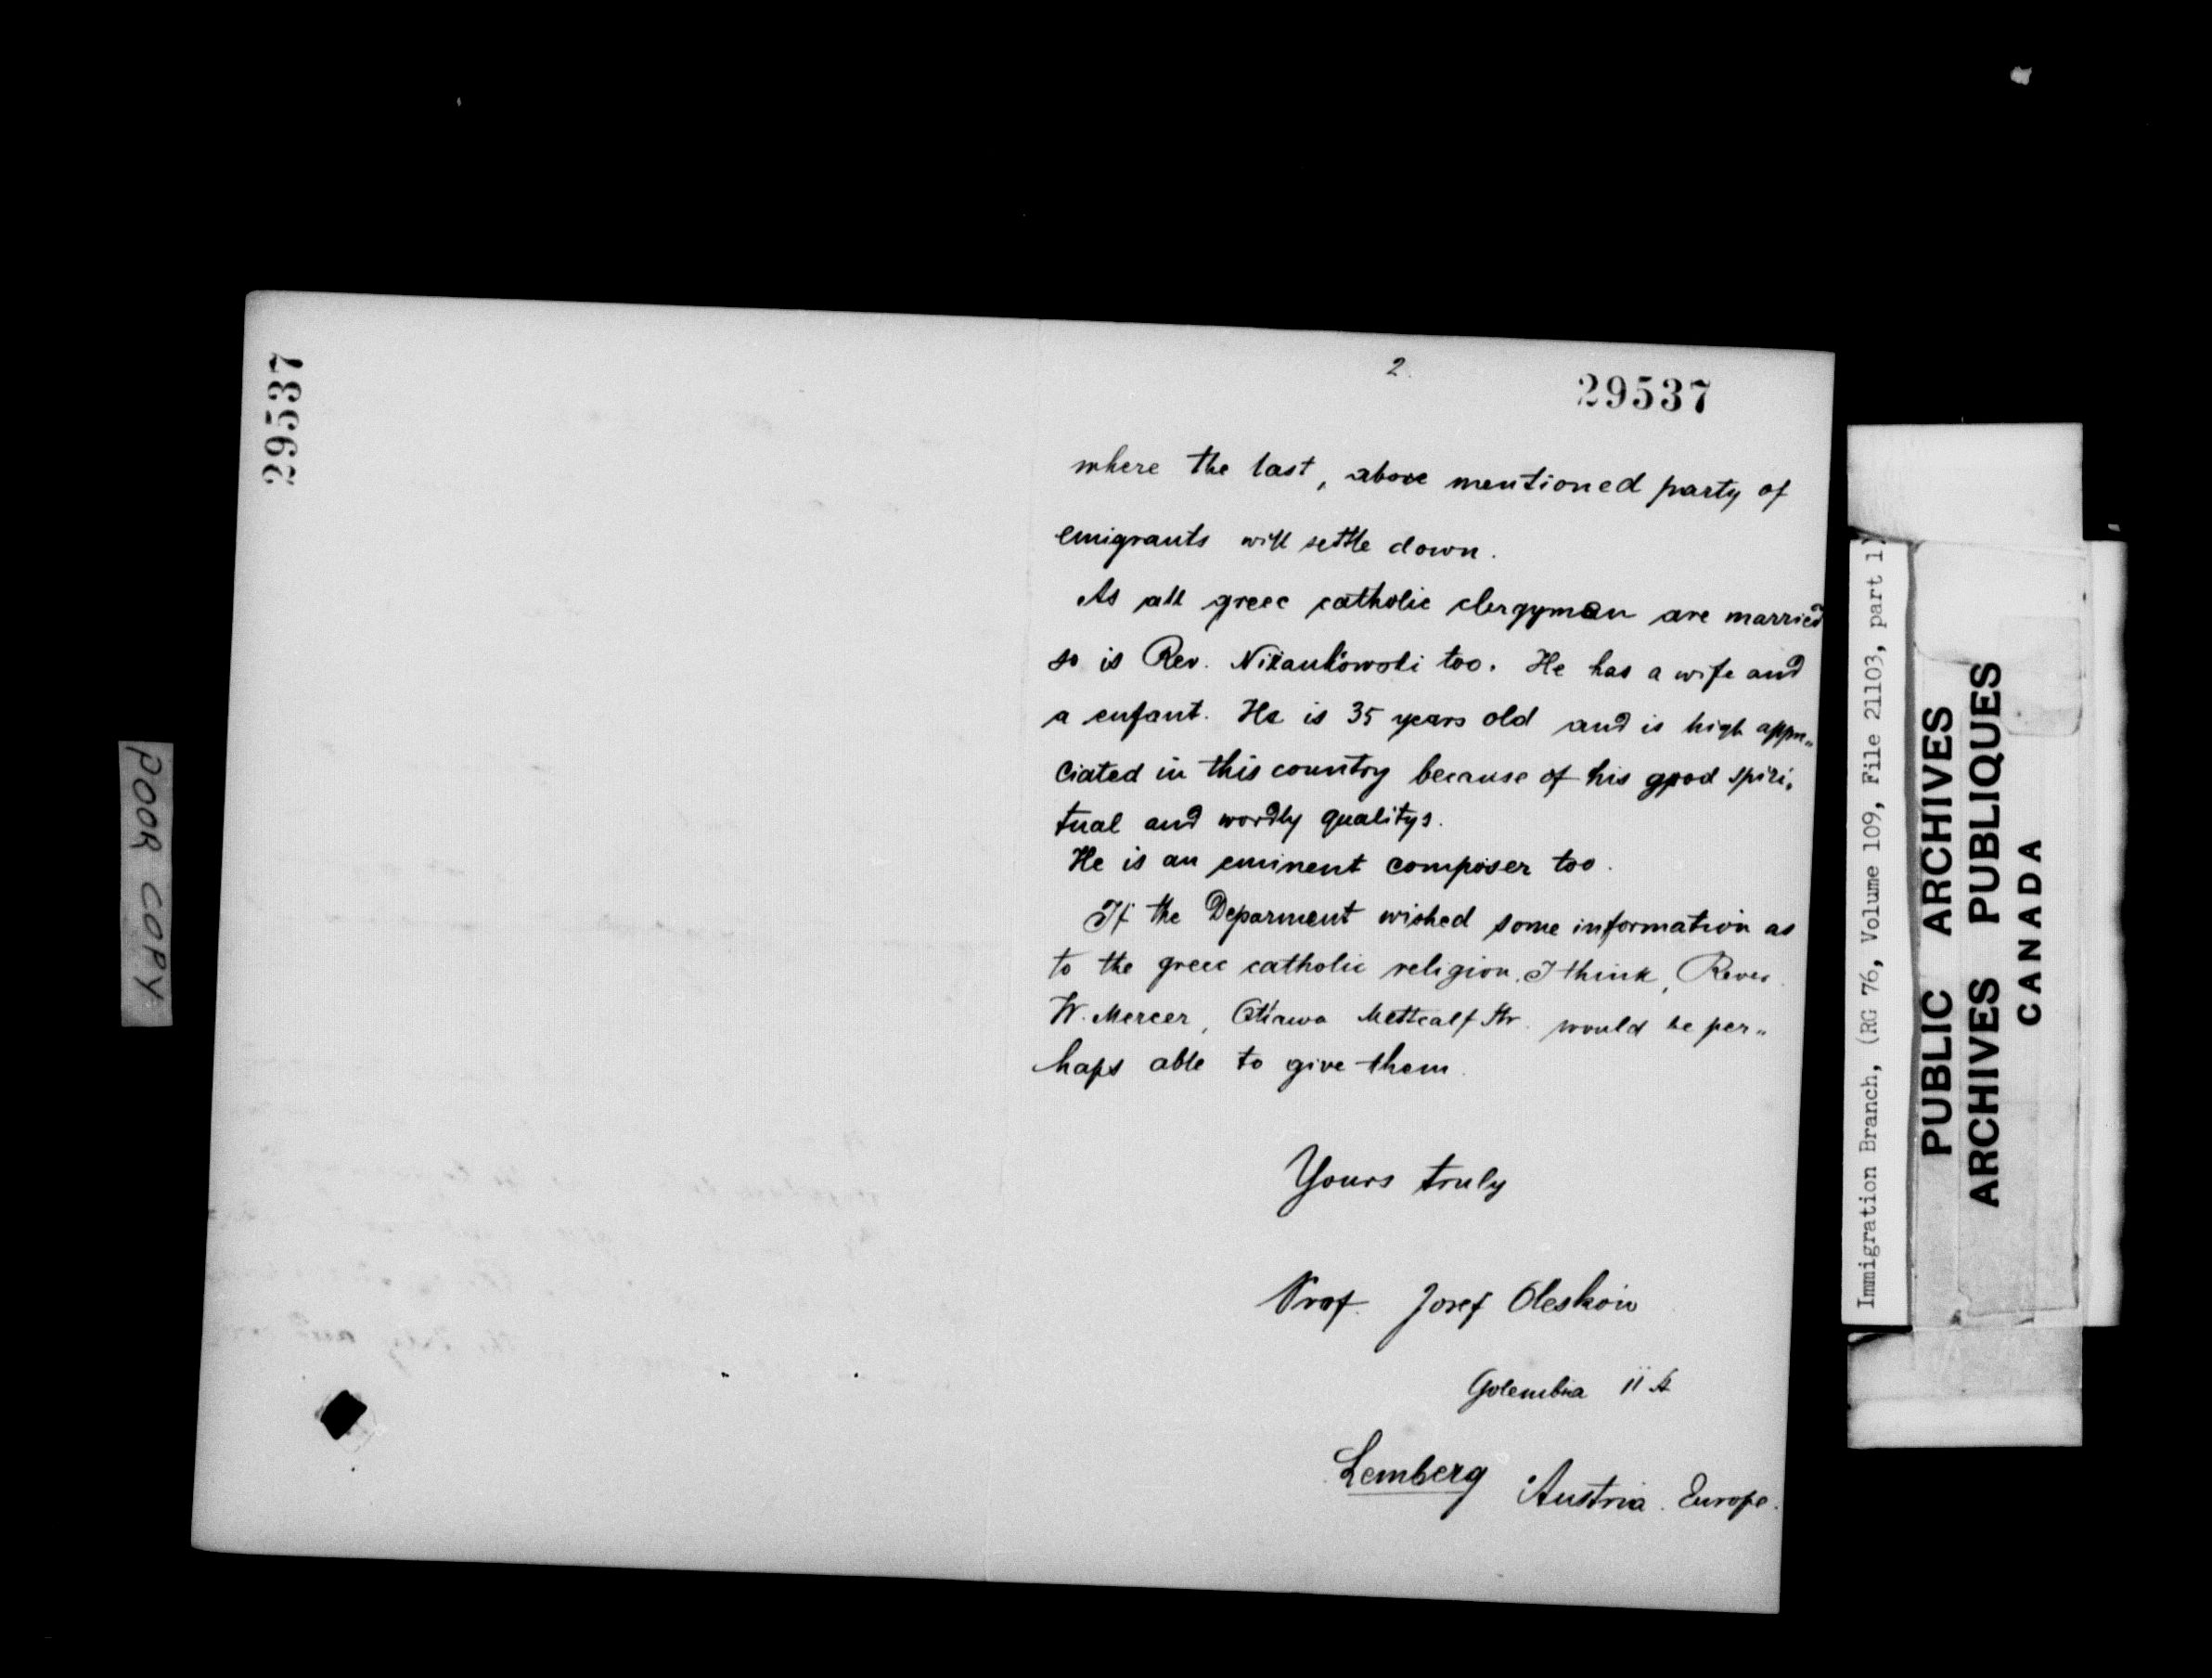 29537
2.
29537
where the last, above mentioned party of
emigrants will settle down.
As all greec catholic clergyman are married
so is Rev. Niżankowski too. He has a wife and
a enfant. He is 35 years old and is high appre„
ciated in this country because of his good spiri„
tual and wordly qualitys.
He is an eminent composer too.
If the Deparment wished some information as
to the greec catholic religion, I think, Rever.
W. Mercer, Ottawa Mettcalf Str. would be per„
haps able to give them.
Yours truly
Prof. Josef Oleskow
Golembia 11 A
Lemberg Austria. Europe.
POOR COPY
Immigration Branch, (RG 76, Volume 109, File 21103, part 1)
PUBLIC ARCHIVES
ARCHIVES PUBLIQUES
CANADA